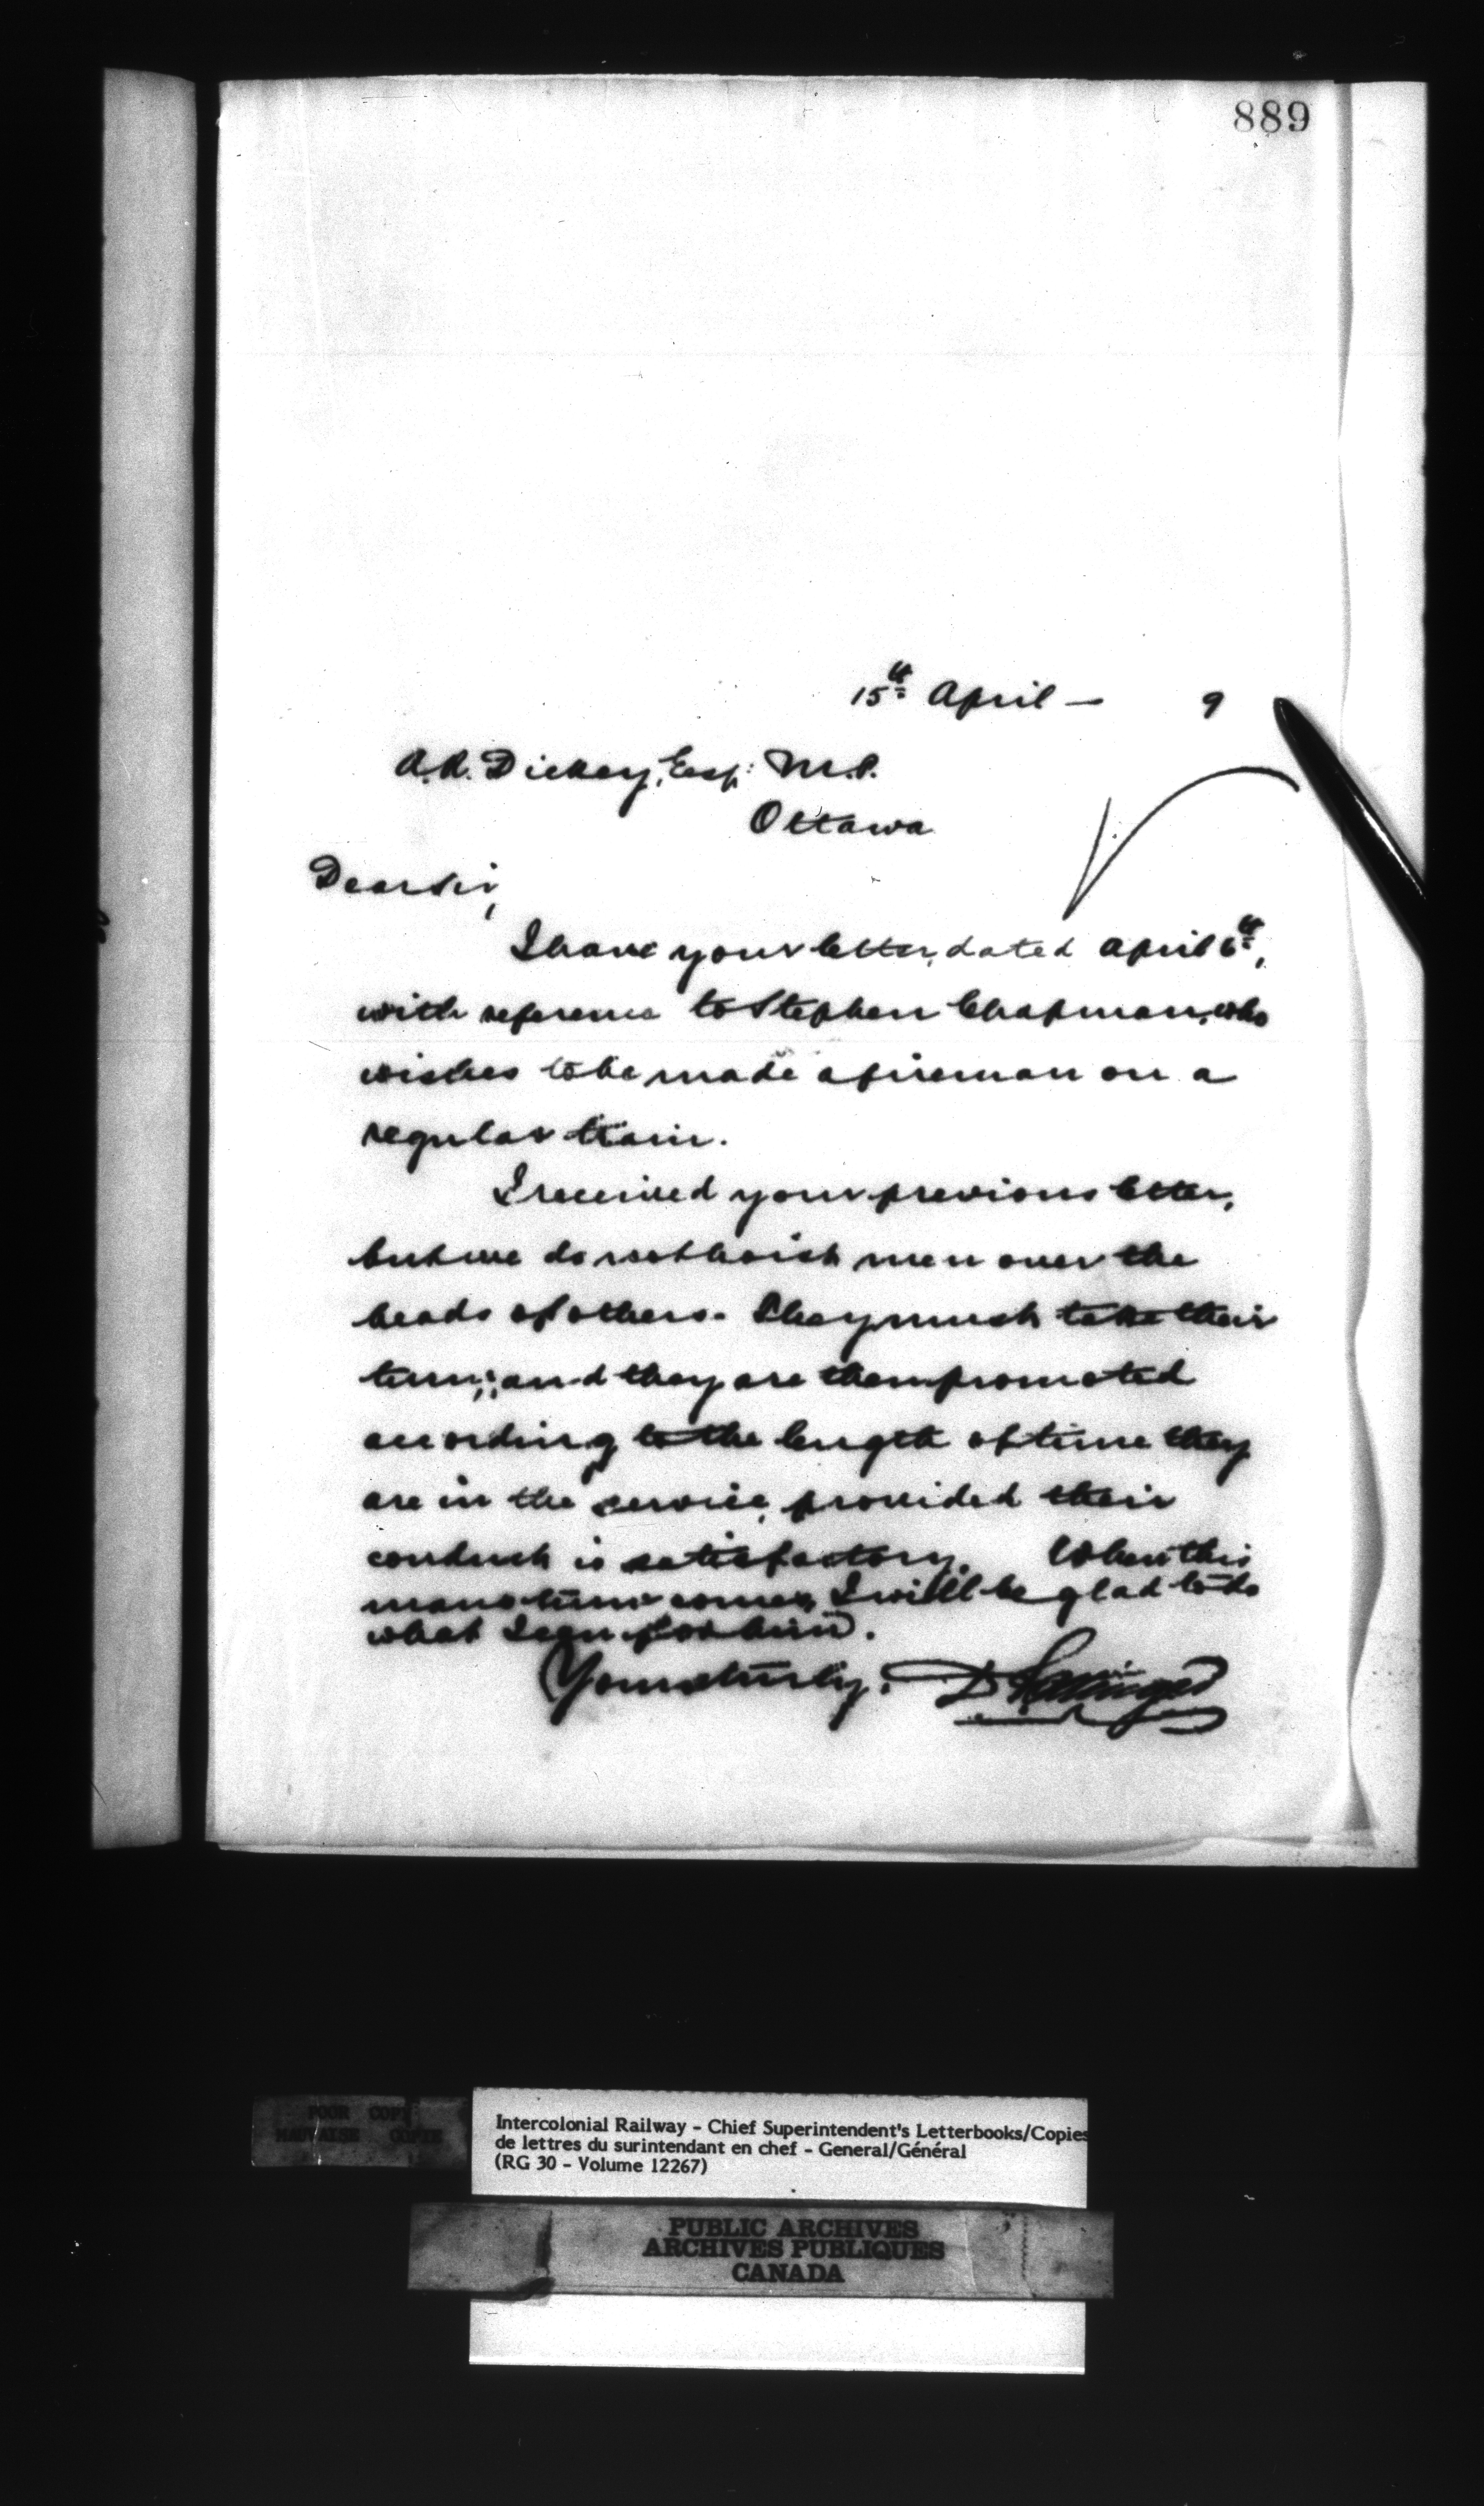 889
15th April — 9
A.R. Dickey, Esq: M.P.
Ottawa
Dear Sir,
I have your letter, dated April 6th,
with reference to Stephen Chapman, who
wishes to be made a fireman on a
regular train.
I received your previous letter,
but we do not hoist men over the
heads of others. They must take their
turn; and they are then promoted
according to the length of time they
are in the service, provided their
conduct is satisfactory. When this
mans turn comes, I will be glad to do
what I can for him.
Yours truly, D Pottinger
POOR COPY
MAUVAISE COPIE
Intercolonial Railway - Chief Superintendent's Letterbooks/Copies
de lettres du surintendant en chef - General/Général
(RG 30 - Volume 12267)
PUBLIC ARCHIVES
ARCHIVES PUBLIQUES
CANADA